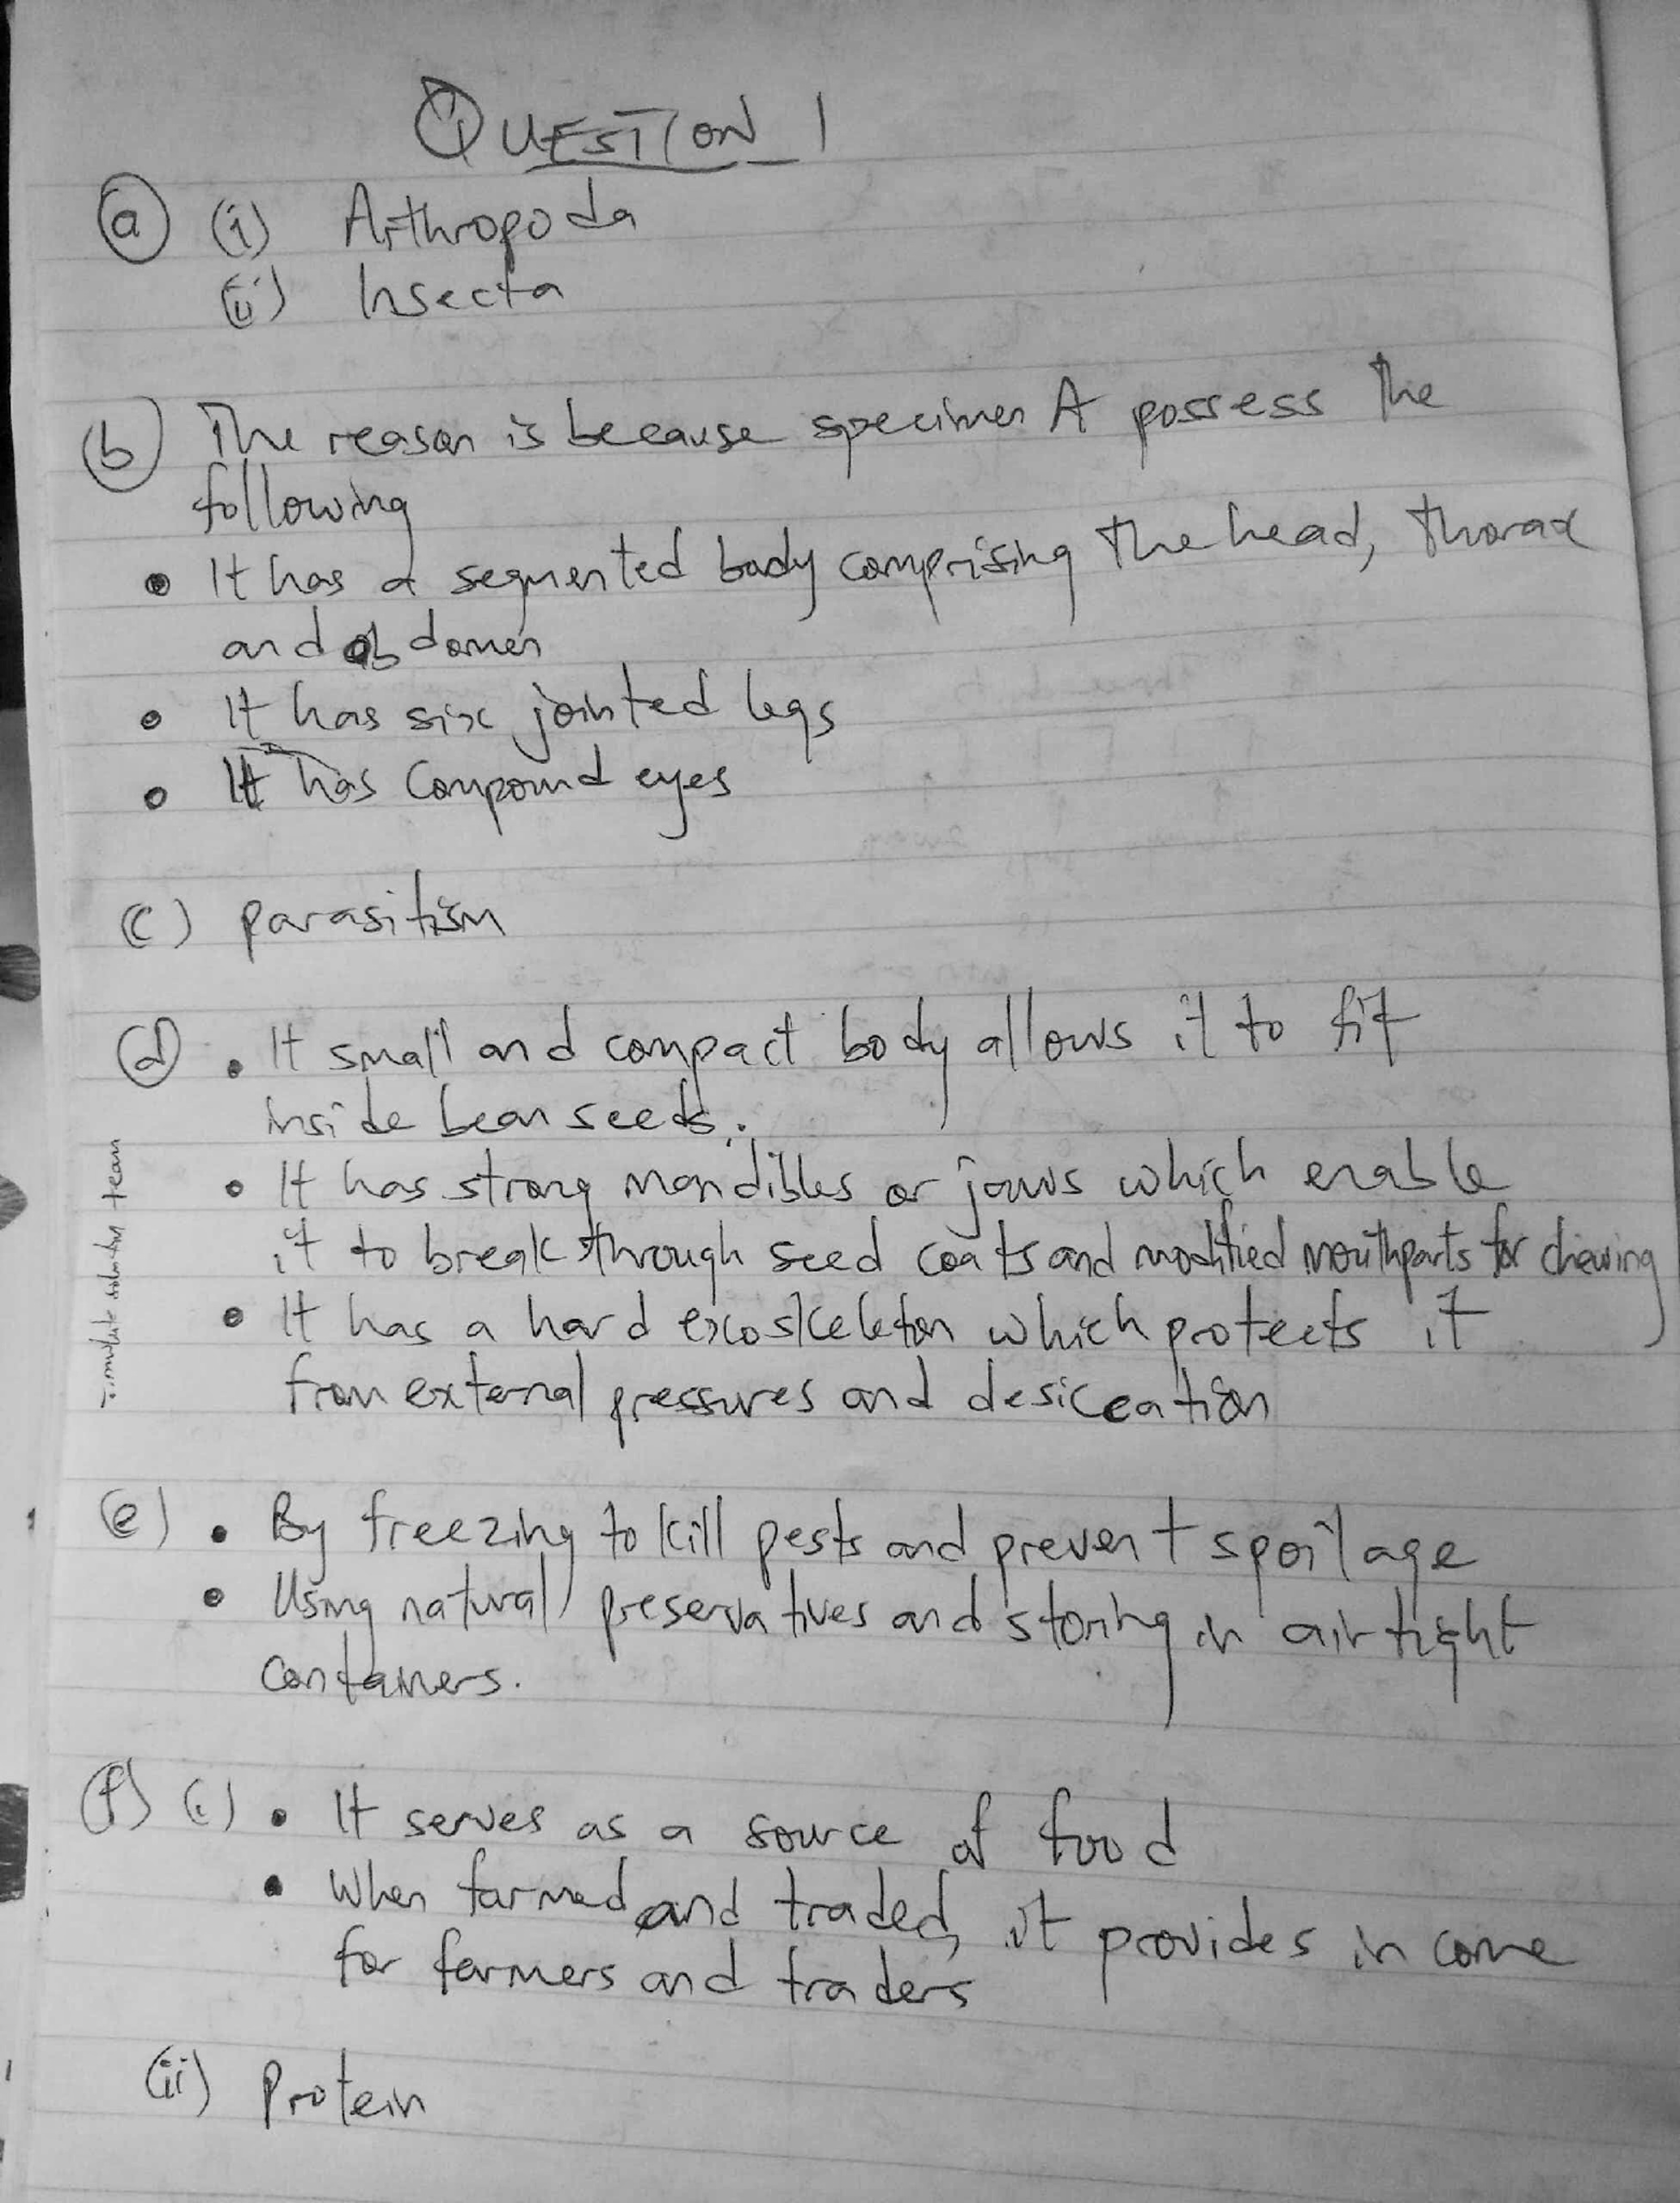 QUESTION 1
(a) (i) Arthropoda
(ii) Insecta
(b) The reason is because specimen A possess the
following
• It has a segmented body comprising the head, thorax
and abdomen
• It has six jointed legs
• It has compound eyes
(c) parasitism
(d) • It small and compact body allows it to fit
inside bean seeds.
• It has strong mandibles or jaws which enable
it to break through seed coats and modified mouthparts for chewing
• It has a hard exoskeleton which protects it
from external pressures and desiccation
solution team
(e) • By freezing to kill pests and prevent spoilage
• Using natural preservatives and storing in air tight
containers.
(f) (i) • It serves as a source of food
• When farmed and traded, it provides income
for farmers and traders
(ii) Protein